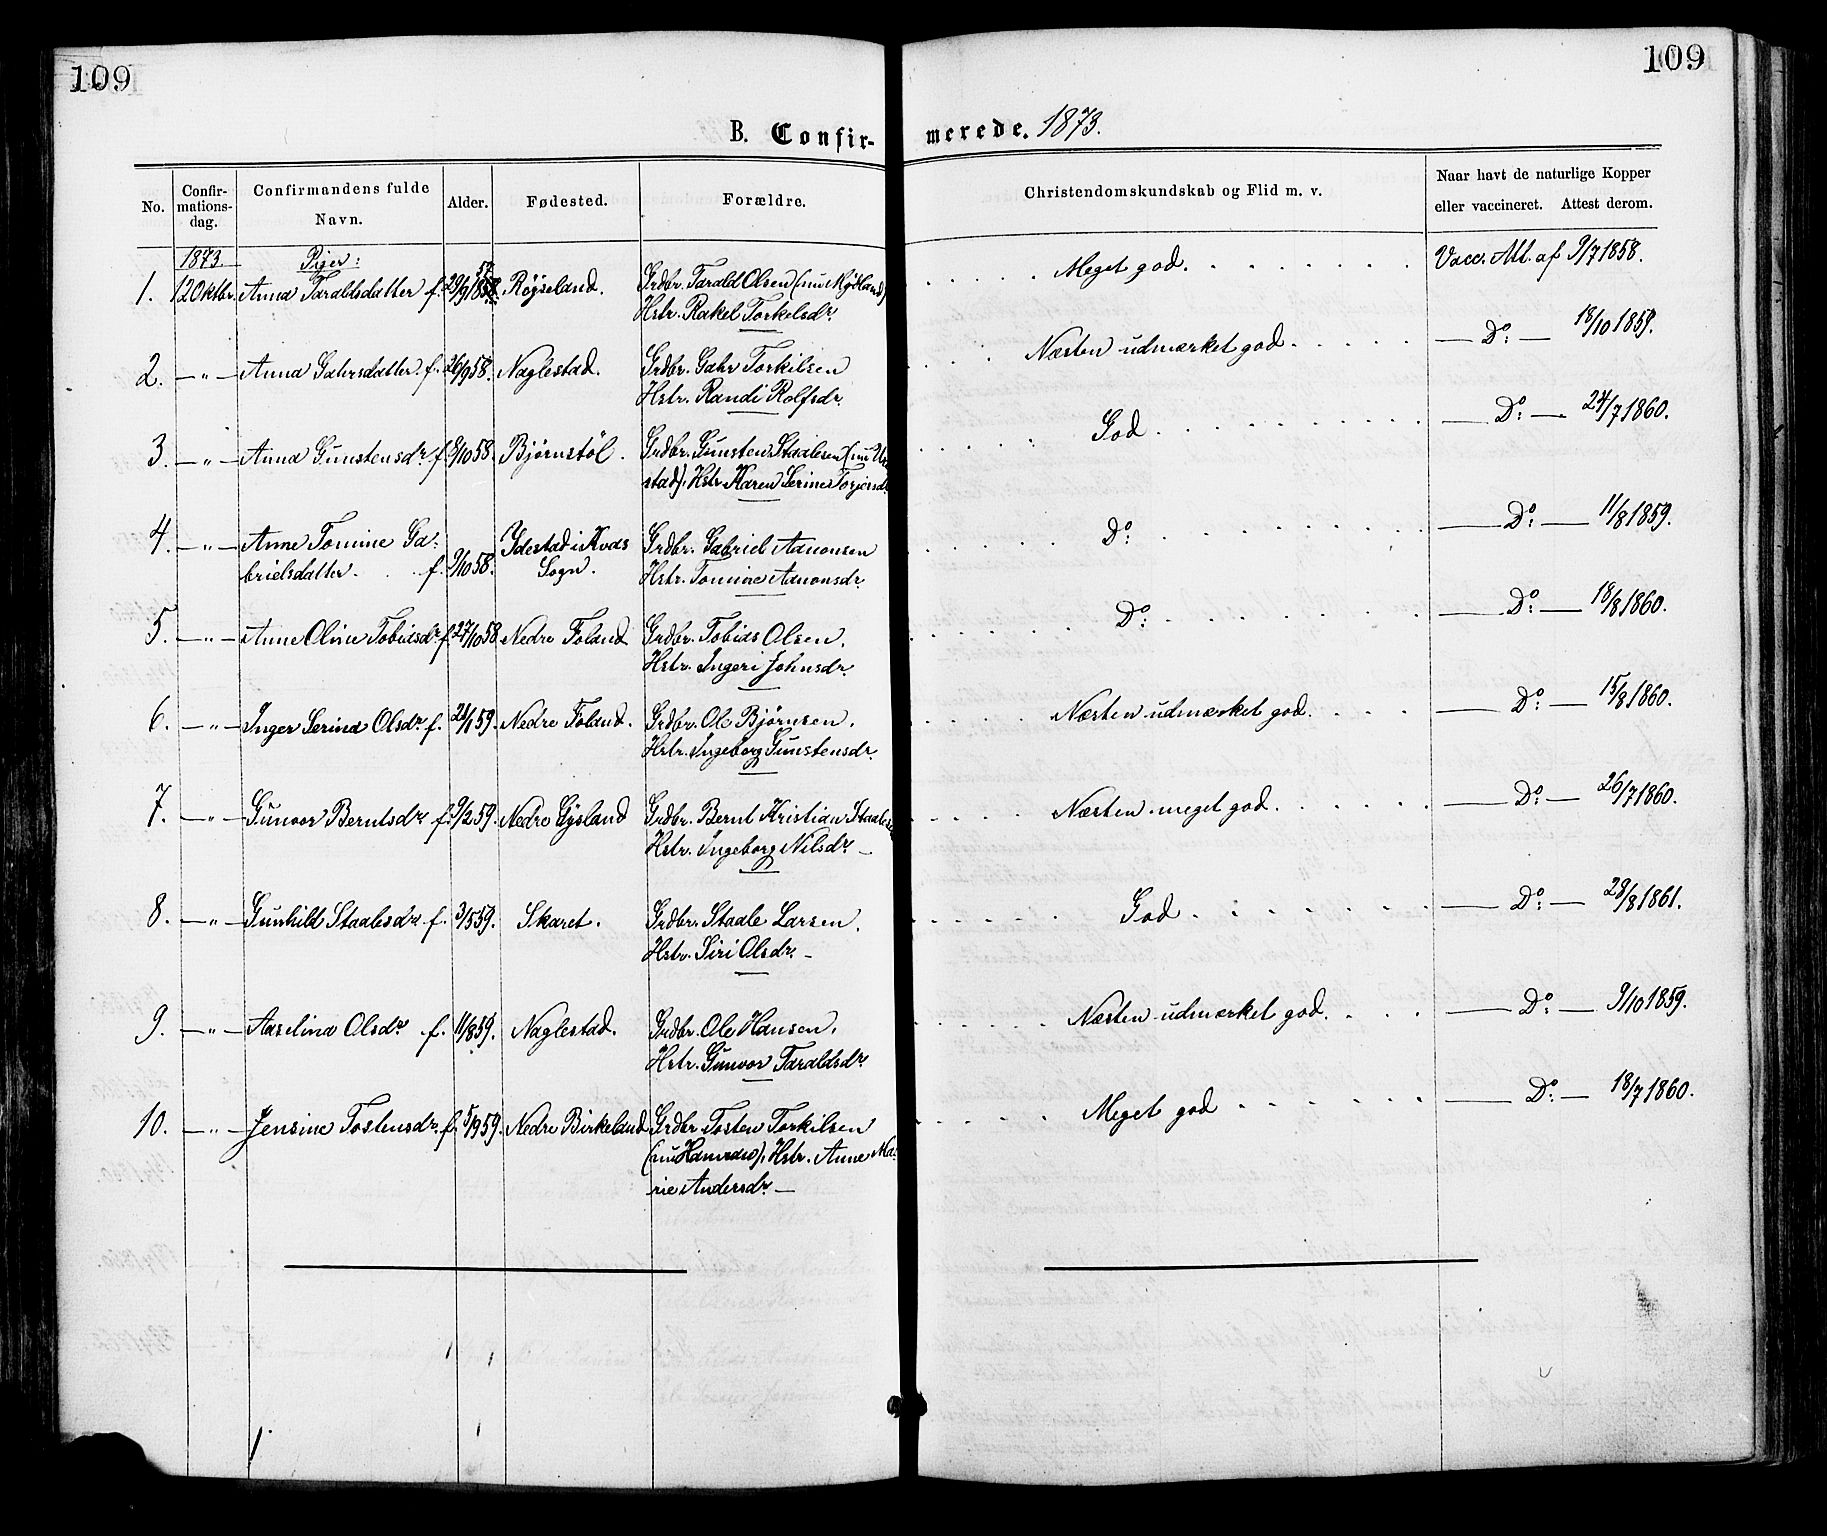 109
109
B. Confir- merede. 1873.
No.
Confir-
mations-
dag.
Confirmandens fulde
Navn.
Alder.
Fødested.
Forældre.
Christendomskundskab og Flid m. v.
Naar havt de naturlige Kopper
eller vaccineret. Attest derom.
1873. Piger:
1. 12 Oktbr. Anna Taraldsdatter f. 29/9 1857 Røyseland. Grdbr. Tarald Olsen (nu Mydland) Meget god. Vacc. Att. af 9/7 1858.
Hstr. Rakel Torkelsdr.
2. — " — Anna Gahrsdatter f. 26/9 58. Naglestad. Grdbr. Gahr Torkilsen Næsten udmærket god. — Do: — 18/10 1859.
Hstr. Randi Rolfsdr.
3. — " — Anna Gunstensdr. f. 8/10 58. Bjørnstøl. Grdbr. Gunsten Staalesen (nu God. — Do: — 24/7 1860.
stad), Hstr. Karen Serine Torjersdr.
4. — " — Anne Tomine Ga-
brielsdatter. f. 9/10 58. Ydestad i Kvas Grdbr. Gabriel Aanonsen Do: — Do: — 11/8 1859.
Sogn. Hstr. Tomine Aanonsdr.
5. — " — Anne Oline Tobiasdr. f. 27/10 58. Nedre Foland Grdbr. Tobias Olsen. Do: — Do: — 18/8 1860.
Hstr. Ingeri Johnsdr.
6. — " — Inger Serina Olsdr. f. 21/1 59. Nedre Foland. Grdbr. Ole Bjørnsen. Næsten udmærket god. — Do: — 15/8 1860.
Hstr. Ingeborg Gunstensdr.
7. — " — Gunvor Berntsdr. f. 9/2 59. Nedre Gysland Grdbr. Bernt Kristian Staalesen Næsten meget god. — Do: — 26/7 1860.
Hstr. Ingeborg Nilsdr. —
8. — " — Gunhild Staalesdr. f. 3/5 59. Skaret. Grdbr. Staale Larsen. God. — Do: — 29/8 1861.
Hstr. Siri Olsdr. —
9. — " — Aaselina Olsdr. f. 11/8 59. Naglestad. Grdbr. Ole Hansen. Næsten udmærket god. — Do: — 9/10 1859.
Hstr. Gunvor Taraldsdr.
10. — " — Jensine Tostensdr. f. 5/9 59. Nedre Birkeland Grdbr. Tosten Torkilsen Meget god. — Do: — 18/7 1860.
(nu Hamraas), Hstr. Anne Ma-
rie Andersdr. —